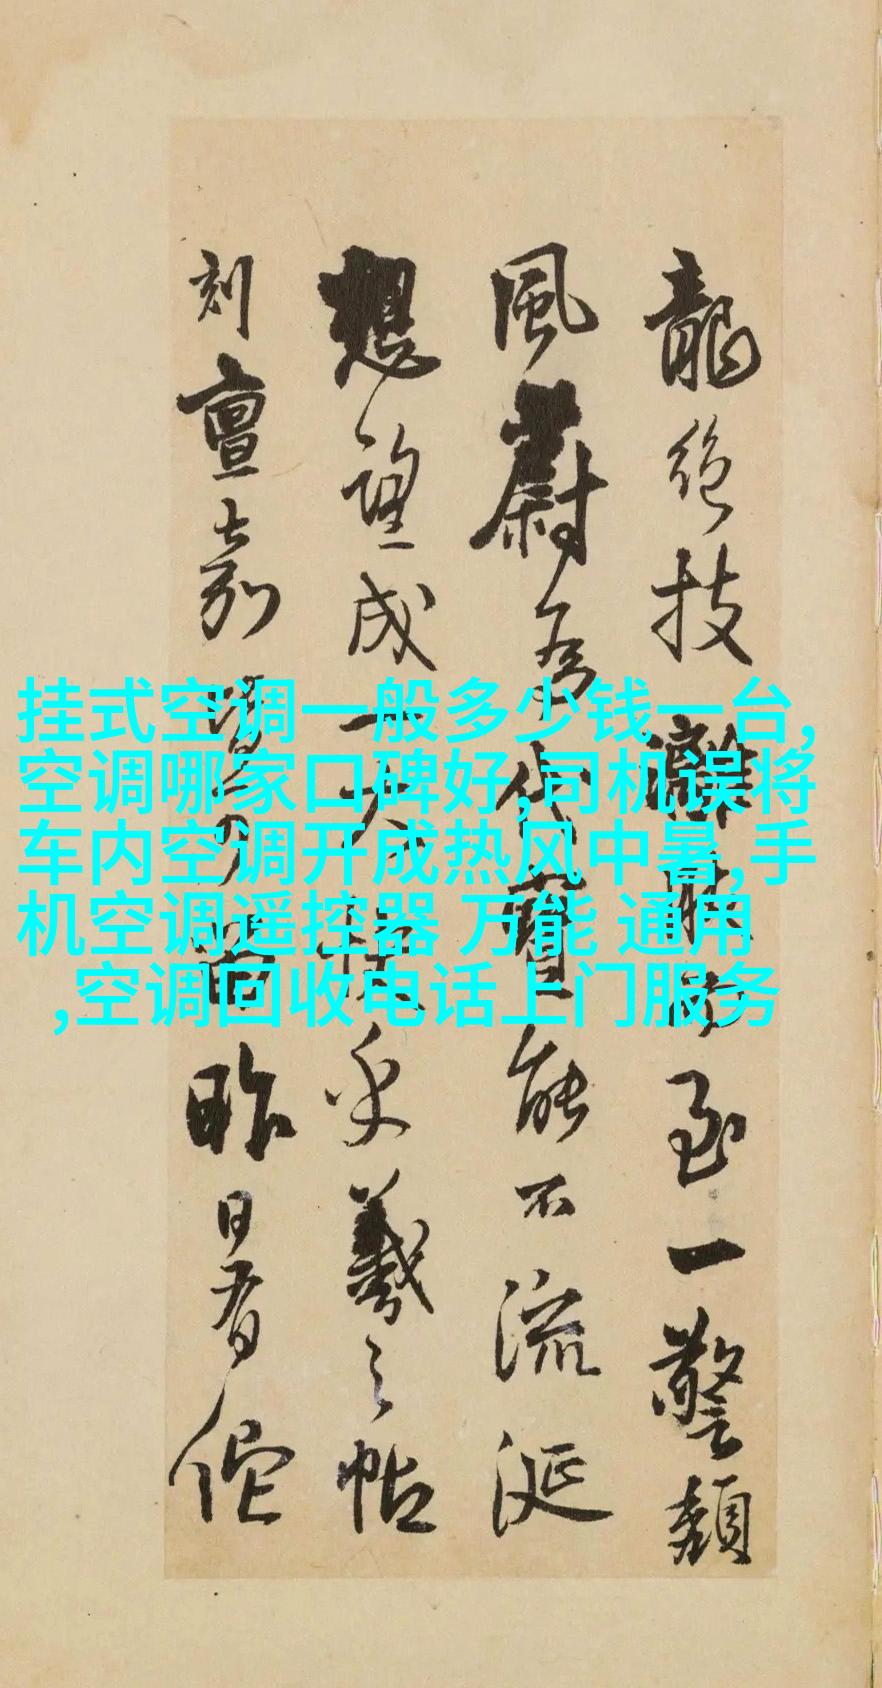 挂式空调一般多少钱一台,
空调哪家口碑好,司机误将
车内空调开成热风中暑,手
机空调遥控器 万能 通用
,空调回收电话上门服务
龍絶技
至一警頽
風蔚為代寶能不流涎
想望成一大
乎羲之帖
刻
嘉
昨日看